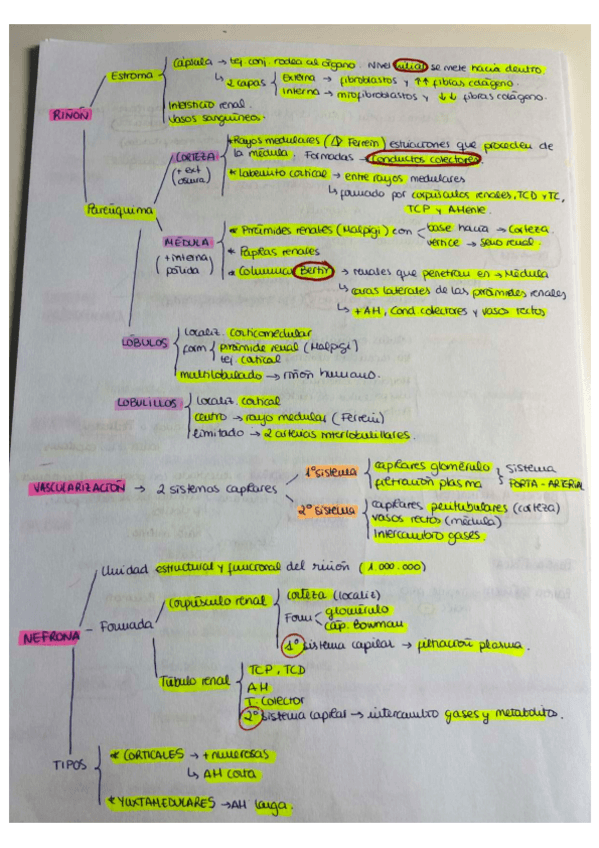 Cápsula → tej. conj. rodea al órgano. Nivel hiliar se mete hacia dentro.
Estroma
↳ 2 capas Externa → fibroblastos y ↑↑ fibras colágeno.
Interna → miofibroblastos y ↓↓ fibras colágeno.
RIÑÓN
Intersticio renal.
Vasos sanguíneos.
* Rayos medulares (Ferrein) estriaciones que proceden de
CORTEZA
la médula. Formadas → Conductos colectores
(+ ext oscura)
* Laberinto cortical → entre rayos medulares
↳ formado por corpúsculos renales, TCD y TC,
TCP y AHente.
Parénquima
* Pirámides renales (Malpigi) con base hacia → Corteza.
vértice → seno renal.
MÉDULA
(+ interna pálida)
* Papilas renales
* Columnas Bertin → renales que penetran en → Médula
↳ caras laterales de las pirámides renales
↳ + AH, Cond. colectores y vasos rectos
Localiz. corticomedular
LÓBULOS
form pirámide renal (Malpigi)
tej. cortical
multilobulado → riñón humano.
LOBULILLOS
Localiz. cortical
centro → rayo medular (Ferrein)
Limitado → 2 arterias interlobulillares.
1º sistema capilares glomérulo
filtración plasma
sistema
PORTA-ARTERIAL
VASCULARIZACIÓN → 2 sistemas capilares
2º sistema capilares peritubulares (corteza)
vasos rectos (médula)
Intercambio gases.
Unidad estructural y funcional del riñón (1.000.000)
corteza (localiz)
Corpúsculo renal
Form glomérulo
cáp. Bowman
NEFRONA - Formada
1º sistema capilar → filtración plasma.
TCP, TCD
Túbulo renal
AH
T. Colector
2º sistema capilar → intercambio gases y metabolitos.
* CORTICALES → + numerosas
TIPOS
↳ AH corta
* YUXTAMEDULARES → AH larga.